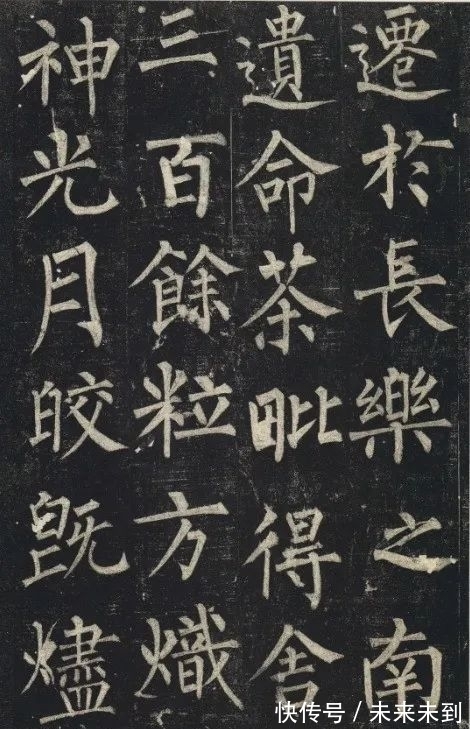 遷於長樂之南
遺命茶毗得舎
三百餘粒方熾
神光月皎既燼
快传号/未来未到